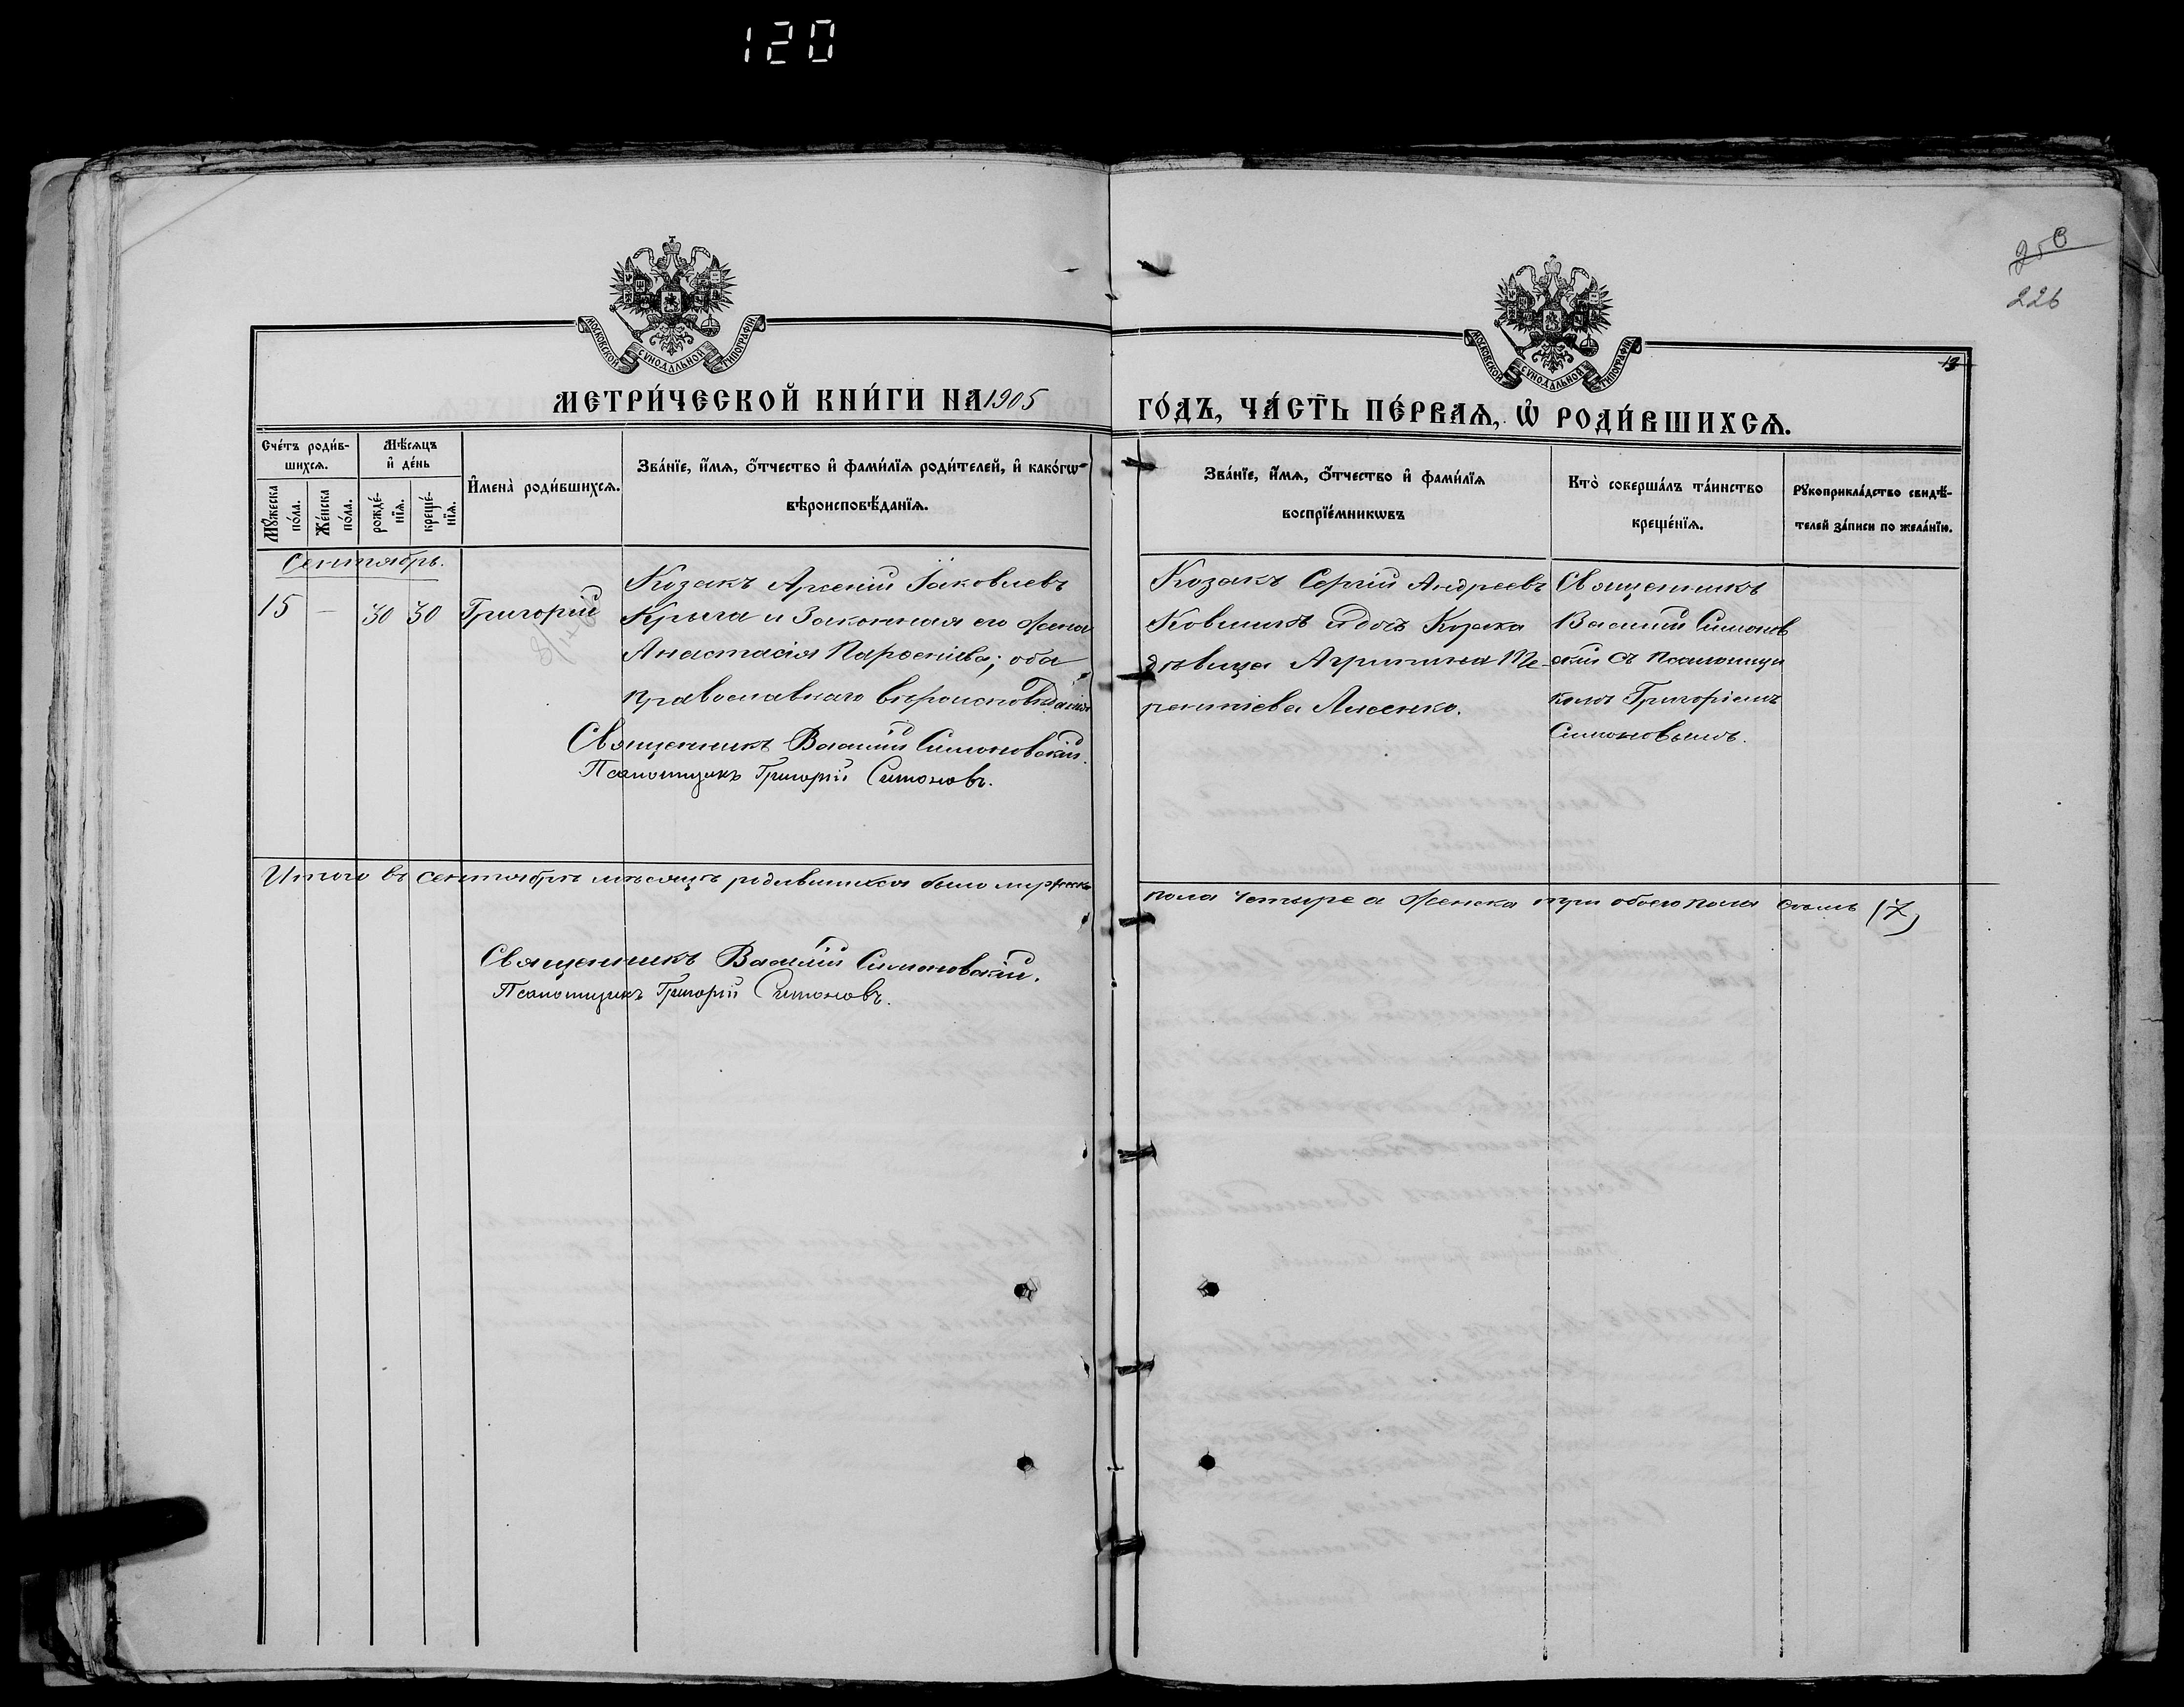 120
250
226
13
МОСКОВСКОЙ СѴНОДАЛЬНОЙ ТИПОГРАФІИ
МОСКОВСКОЙ СѴНОДАЛЬНОЙ ТИПОГРАФІИ
МЕТРИ́ЧЕСКОЙ КНИ́ГИ НА 1905
ГО́ДЪ, ЧА́СТЬ ПЕ́РВАЯ, Ѡ҆ РОДИ́ВШИХСЯ.
Сче́тъ роди́в-
шихся.
Мѣ́сяцъ
и҆ де́нь
Мꙋ́жеска
по́ла.
Же́нска
по́ла.
рожде́-
нїя.
креще́-
нїя.
И҆мена̀ роди́вшихся.
Зва́нїе, и҆́мя, ѻ҆́тчество и҆ фами́лїя роди́телей, и҆ како́гѡ
вѣроисповѣ́данїя.
Зва́нїе, и҆́мя, ѻ҆́тчество и҆ фами́лїя
воспрїе́мникѡвъ
Кто̀ соверша́лъ та́инство
креще́нїя.
Рꙋкоприкла́дство свидѣ́-
телей за́писи по жела́нїю.
Сентябрь.
15 — 30 30 Григорій
Козакъ Арсеній Іаковлевъ
Крыга и Законная его жена
Анастасія Парѳеніева; оба
православнаго вѣроисповѣданія
Священникъ Василій Симоновскій.
Псаломщикъ Григорій Симоновъ.
Козакъ Сергій Андреевъ
Ковшикъ и дочь Козака
дѣвица Агрипина Те-
рентіева Лисенко.
Священникъ
Василій Симонов
скій съ Псаломщи
комъ Григоріемъ
Симоновымъ.
Итого въ сентябрѣ мѣсяцѣ родившихся было мужеска
пола четыре а женска три обоего пола семь (7)
Священникъ Василій Симоновскій.
Псаломщикъ Григорій Симоновъ.